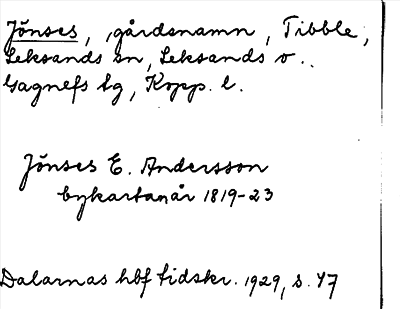 Jönses, gårdsnamn, Tibble,
Leksands sn, Leksands o.
Gagnefs tg, Kopp. l.
Jönses E. Andersson
bykartan år 1819-23
Dalarnas hbf tidskr. 1929, s. 47